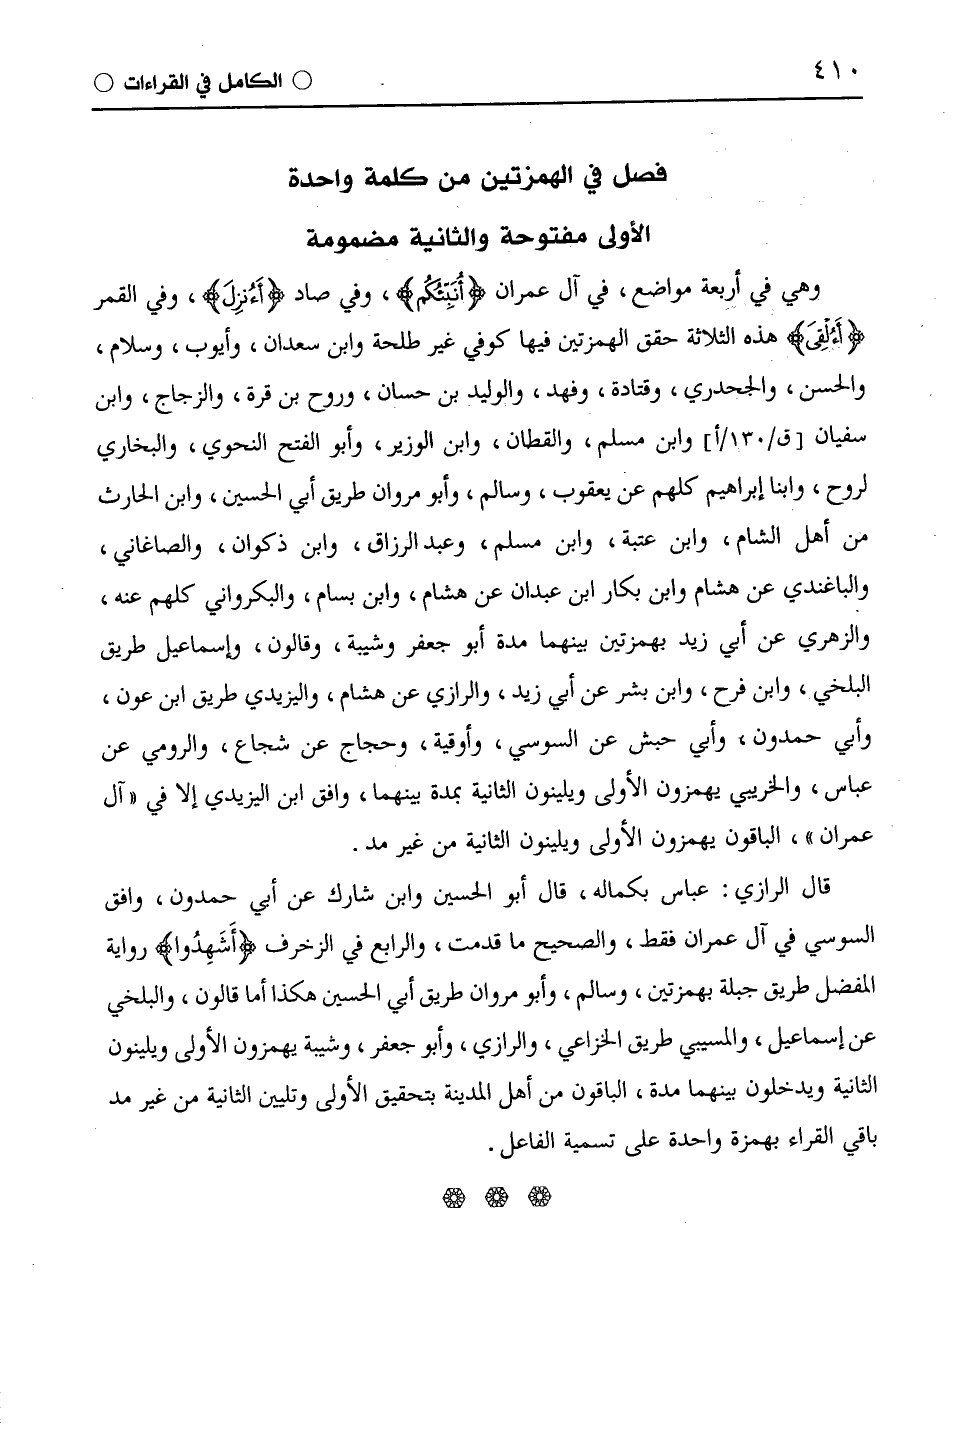 ٤١٠
○ الكامل في القراءات ○
فصل في الهمزتين من كلمة واحدة
الأولى مفتوحة والثانية مضمومة
وهي في أربعة مواضع، في آل عمران ﴿أُنَبِّئُكُم﴾، وفي صاد ﴿أَءُنزِلَ﴾، وفي القمر
﴿أَءُلْقِىَ﴾ هذه الثلاثة حقق الهمزتين فيها كوفي غير طلحة وابن سعدان، وأيوب، وسلام،
والحسن، والجحدري، وقتادة، وفهد، والوليد بن حسان، وروح بن قرة، والزجاج، وابن
سفيان [ق/١٣٠/أ] وابن مسلم، والقطان، وابن الوزير، وأبو الفتح النحوي، والبخاري
لروح، وابنا إبراهيم كلهم عن يعقوب، وسالم، وأبو مروان طريق أبي الحسين، وابن الحارث
من أهل الشام، وابن عتبة، وابن مسلم، وعبد الرزاق، وابن ذكوان، والصاغاني،
والباغندي عن هشام وابن بكار ابن عبدان عن هشام، وابن بسام، والبكرواني كلهم عنه،
والزهري عن أبي زيد بهمزتين بينهما مدة أبو جعفر وشيبة، وقالون، وإسماعيل طريق
البلخي، وابن فرح، وابن بشر عن أبي زيد، والرازي عن هشام، واليزيدي طريق ابن عون،
وأبي حمدون، وأبي حبش عن السوسي، وأوقية، وحجاج عن شجاع، والرومي عن
عباس، والخريبي يهمزون الأولى ويلينون الثانية بمدة بينهما، وافق ابن اليزيدي إلا في «آل
عمران»، الباقون يهمزون الأولى ويلينون الثانية من غير مد.
قال الرازي: عباس بكماله، قال أبو الحسين وابن شارك عن أبي حمدون، وافق
السوسي في آل عمران فقط، والصحيح ما قدمت، والرابع في الزخرف ﴿أَشَهِدُوا﴾ رواية
المفضل طريق جبلة بهمزتين، وسالم، وأبو مروان طريق أبي الحسين هكذا أما قالون، والبلخي
عن إسماعيل، والمسيبي طريق الخزاعي، والرازي، وأبو جعفر، وشيبة يهمزون الأولى ويلينون
الثانية ويدخلون بينهما مدة، الباقون من أهل المدينة بتحقيق الأولى وتليين الثانية من غير مد
باقي القراء بهمزة واحدة على تسمية الفاعل.